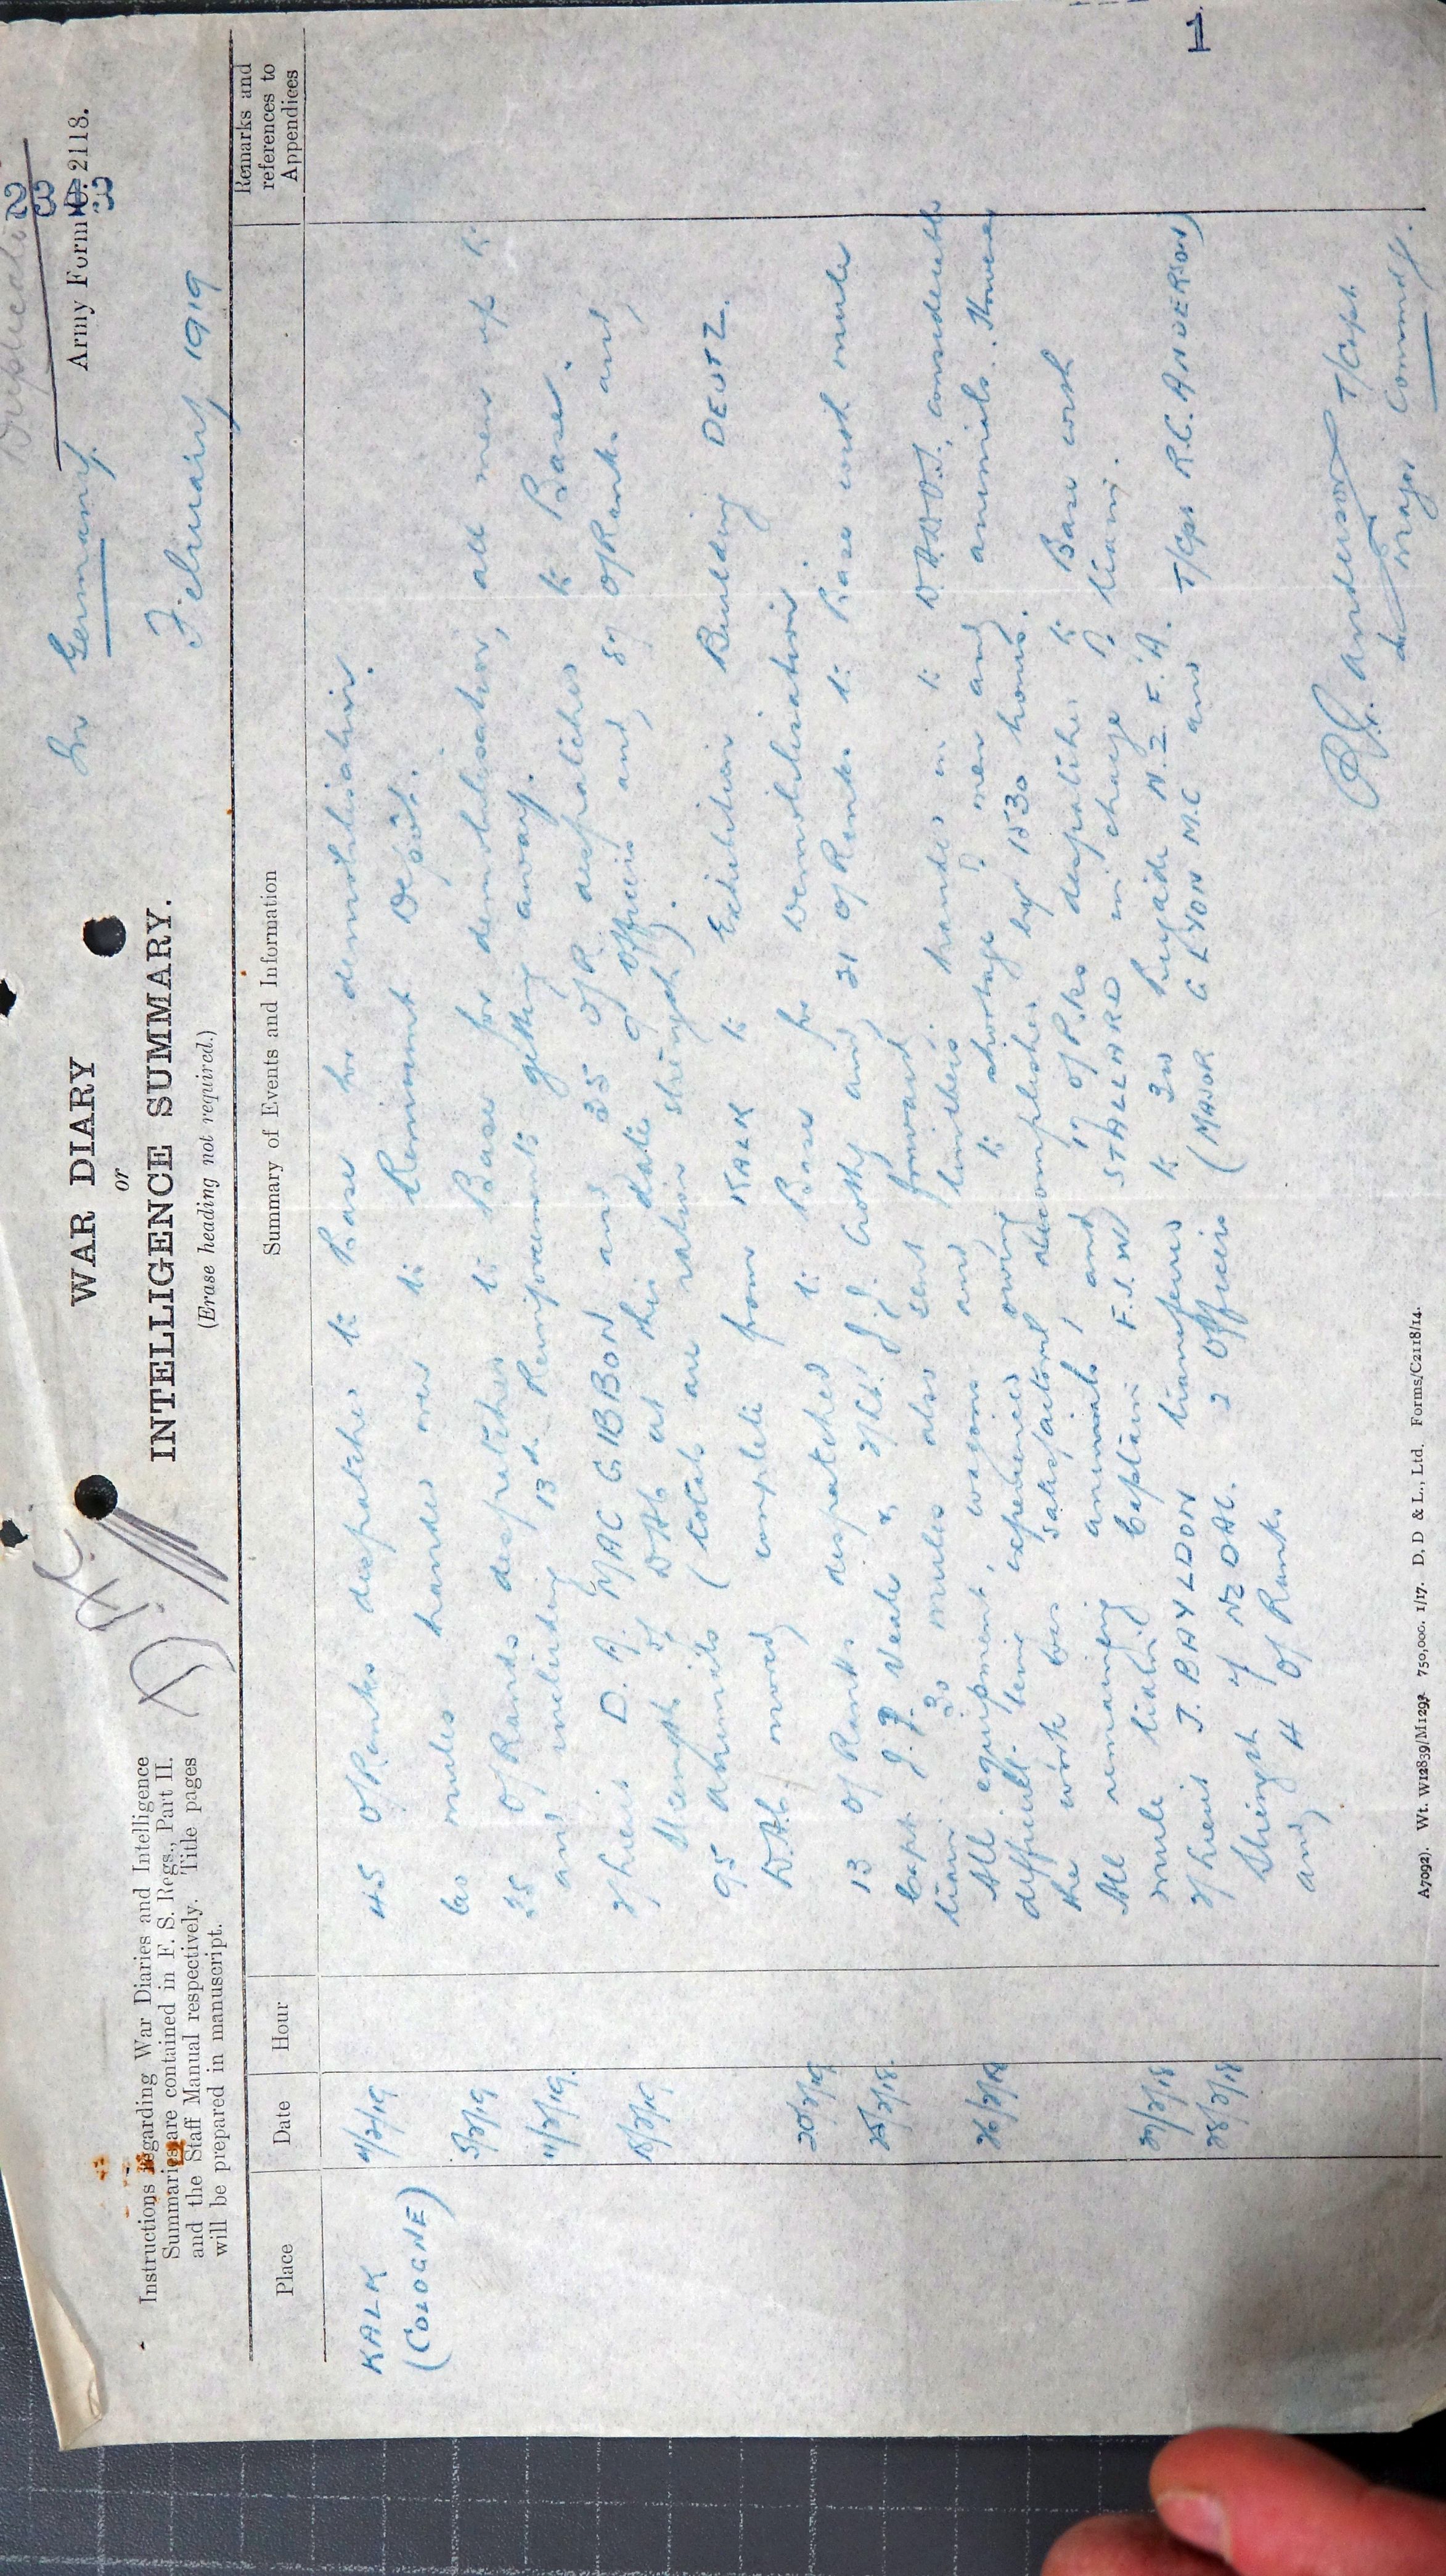 Duplicate
Army Form C. 2118.
In Germany
February 1919
WAR DIARY
or
INTELLIGENCE SUMMARY.
(Erase heading not required.)
Instructions regarding War Diaries and Intelligence
Summaries are contained in F. S. Regs., Part II.
and the Staff Manual respectively. Title pages
will be prepared in manuscript.
Place Date Hour Summary of Events and Information Remarks and references to Appendices
KALK 4/2/19 45 O/Ranks despatched to Base for demobilisation.
(COLOGNE) 60 mules handed over to Remount Depôt.
5/2/19 35 O/Ranks despatched to Base for demobilisation, all men up to
and including 13th Reinforcements getting away.
11/2/19. 2/Lieut D. A. MAC GIBBON and 35 O/R despatched to Base.
18/2/19 Strength of DAC at this date 9 Officers and, 87 O/Ranks and,
95 animals (total are ration strength).
DAC moved complete from KALK to Exhibition Building DEUTZ.
20/2/19 13 O/Ranks despatched to Base for Demobilisation.
25/2/18. Capt J. P. Veale & 2/Lt. J. J. Crotty and, 31 O/Ranks to Base with mule
train. 30 mules also sent forward.
26/2/19 All equipment, wagons and limbers handed in to D.A.D.O.S., considerable
difficult being experienced owing to shortage of men and animals. However
the work was satisfactorily accomplished by 1530 hours.
All remaining animals, and 17 O/Rks despatched to Base with
mule train. Captain F.J.W STALLARD in charge of train.
27/2/18 2/Lieut J. BAYLDON transferred to 3rd Brigade N.Z.F.A.
28/2/18 Strength of NZ DAC. 2 Officers (MAJOR G LYON M.C and T/Capt R.C. ANDERSON)
and, 4 O/Ranks
R.C. Anderson T/Capt.
for Major Commdg.
1
A7092). Wt. W12839/M1293 750,000. 1/17. D, D & L., Ltd. Forms/C2118/14.